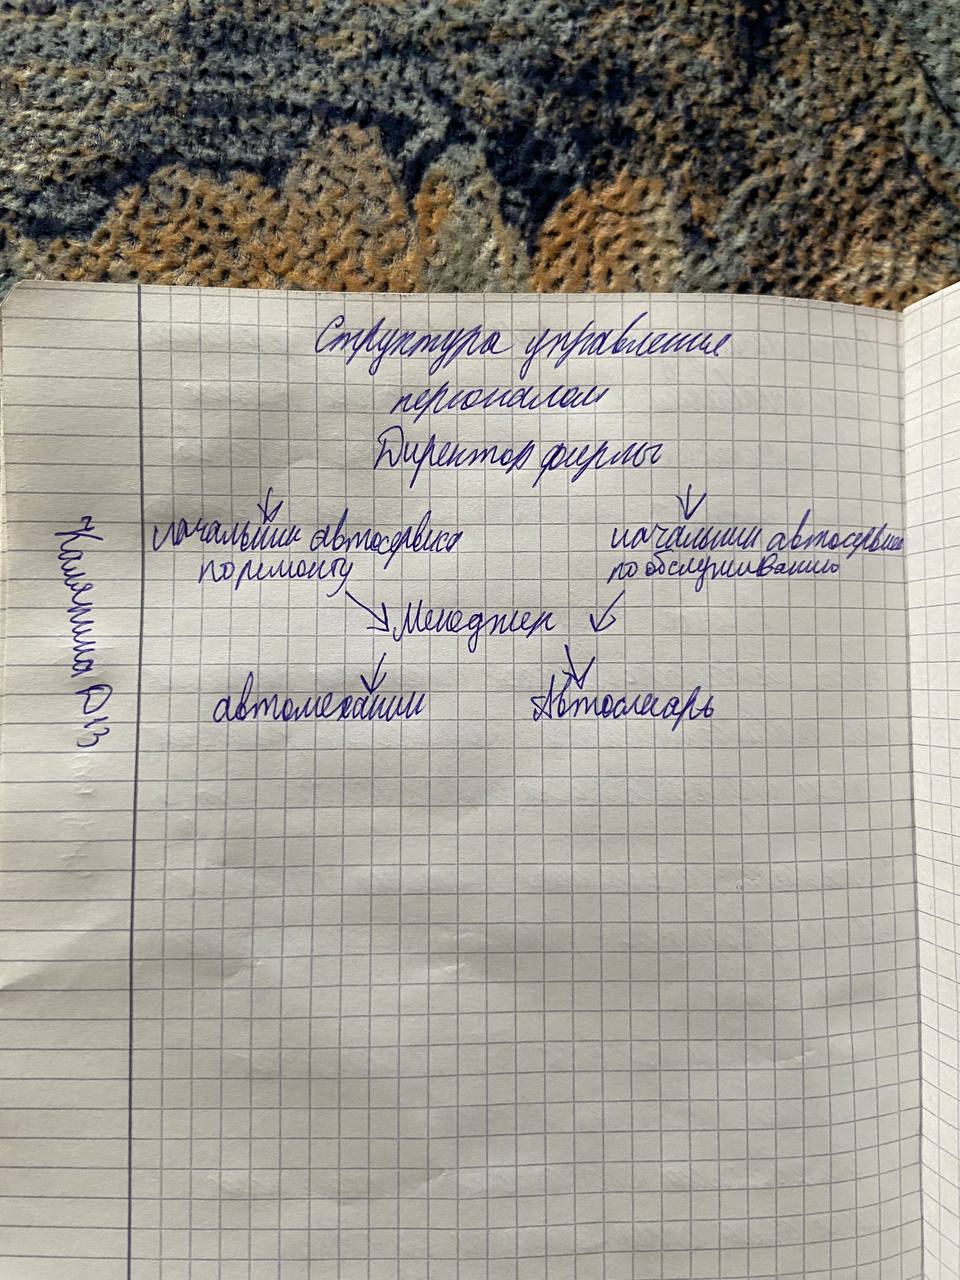 Структура управления
персоналом
Директор фирмы
начальник автосервиса
по ремонту
начальник автосервиса
по обслуживанию
Менеджер
автомеханик
Автослесарь